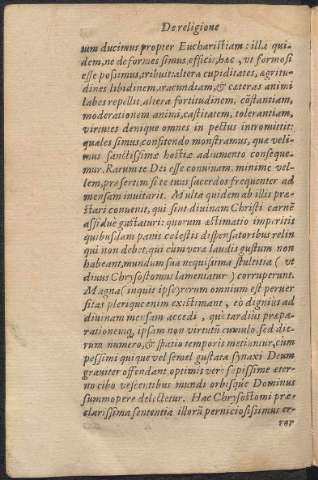 De religione
tum ducimus propter Eucharistiam: illæ qui-
dem, ne deformes simus, efficit; hæc, ut formosi
esse possimus, tribuit: altera cupiditates, ægritu-
dines libidinem, iracundiam, & cæteras animi
labes repellit, altera fortitudinem, cõstantiam,
moderationem animi, castitatem, tolerantiam,
virtutes denique omnes in pectus intromittit:
quales simus, confitendo monstramus, quæ veli-
mus sanctissimæ hostiæ adiumento conseque-
mur. Rarum te Dei esse conuiuam, minimè vel-
lem, præsertim si te tuus sacerdos frequenter ad
mensam inuitarit. Multa quidem ab illis præ-
stari conuenit, qui sint diuinam Christi carnẽ
assiduè gustaturi: quorum æstimatio imperitis
quibusdam panis cœlestis dispensatoribus relin
qui non debet, qui cum vera laudis gustum non
habeant, mundum sua nequissima stultitia ( ut
diuus Chrysostomus lamentatur ) corruperunt.
Magna ( inquit ipse ) rerum omnium est peruer
sitas plerique enim existimant, eò dignius ad
diuinam mensam accedi, quò tardius præpa-
rationemq́; ipsam non virtutũ cumulo, sed die-
rum numero, & spatio temporis metiuntur, cum
pessimi quique vel semel gustata synaxi Deum
grauiter offendant, optimis verò sæpissime æter-
no cibo vescentibus mundi orbisque Dominus
summopere delectetur. Hæc Chrysostomi præ-
clarissima sententia illorũ perniciosissimus er-
ror